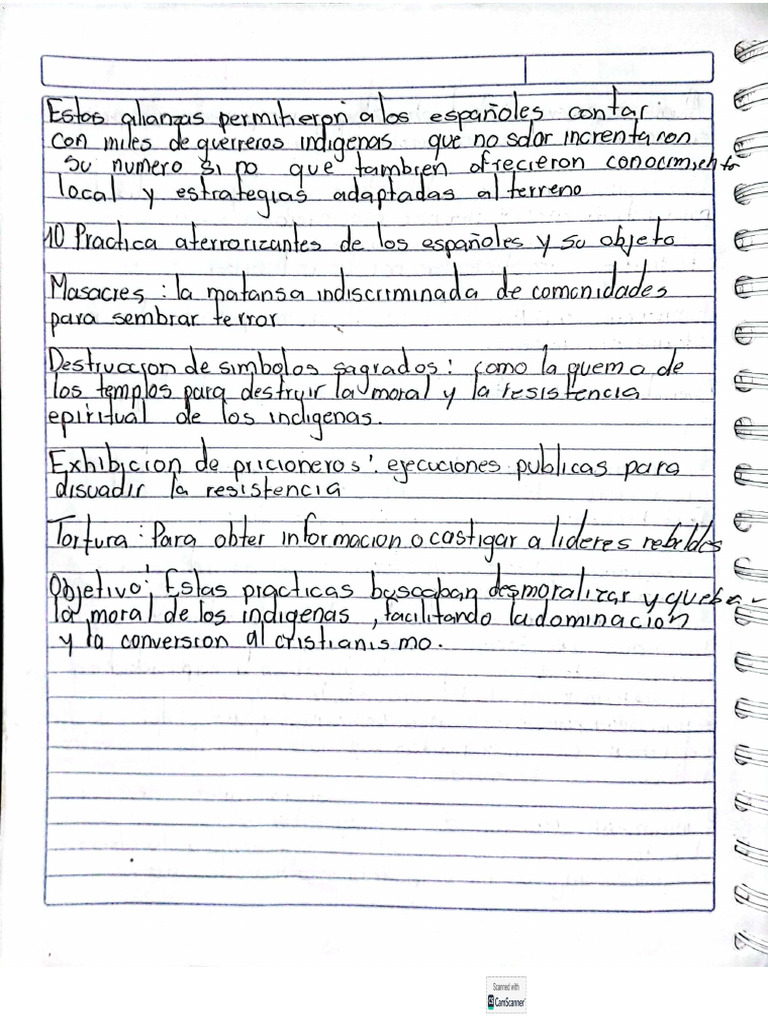 Estos alianzas permitieron a los españoles contar
con miles de guerreros indigenas que no solor increntaron
su numero si no que tambien ofrecieron conocimiento
local y estrategias adaptadas al terreno
10 Practica aterrorizantes de los españoles y su objeto
Masacres : la matansa indiscriminada de comonidades
para sembrar terror
Destruccion de simbolos sagrados : como la quema de
los templos para destruir la moral y la resistencia
epiritual de los indigenas.
Exhibicion de pricioneros : ejecuciones publicas para
disuadir la resistencia
Tortura : Para obter informacion o castigar a lideres rebeldes
Objetivo : Estas practicas buscaban desmoralizar y quebar
la moral de los indigenas , facilitando la dominacion
y la conversion al cristianismo.
Scanned with
CS CamScanner